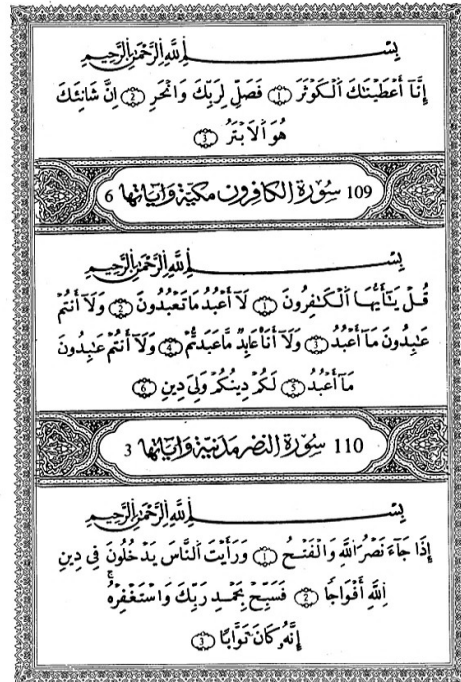 بِسْمِ اللَّهِ الرَّحْمَٰنِ الرَّحِيمِ
إِنَّا أَعْطَيْنَاكَ الْكَوْثَرَ 1 فَصَلِّ لِرَبِّكَ وَانْحَرِ 2 إِنَّ شَانِئَكَ
هُوَ الْأَبْتَرُ 3
109 سُورَة الكَافِرُون مَكيّة وَءَايَاتها 6
بِسْمِ اللَّهِ الرَّحْمَٰنِ الرَّحِيمِ
قُلْ يَٰأَيُّهَا الْكَٰفِرُونَ 1 لَا أَعْبُدُ مَا تَعْبُدُونَ 2 وَلَا أَنتُمْ
عَٰبِدُونَ مَا أَعْبُدُ 3 وَلَا أَنَا عَابِدٌ مَّا عَبَدتُّمْ 4 وَلَا أَنتُمْ عَٰبِدُونَ
مَا أَعْبُدُ 5 لَكُمْ دِينُكُمْ وَلِيَ دِينِ 6
110 سُورَة النَّصْر مَدَنيّة وَءَايَاتها 3
بِسْمِ اللَّهِ الرَّحْمَٰنِ الرَّحِيمِ
إِذَا جَاءَ نَصْرُ اللَّهِ وَالْفَتْحُ 1 وَرَأَيْتَ النَّاسَ يَدْخُلُونَ فِي دِينِ
اللَّهِ أَفْوَاجًا 2 فَسَبِّحْ بِحَمْدِ رَبِّكَ وَاسْتَغْفِرْهُ
إِنَّهُ كَانَ تَوَّابًا 3